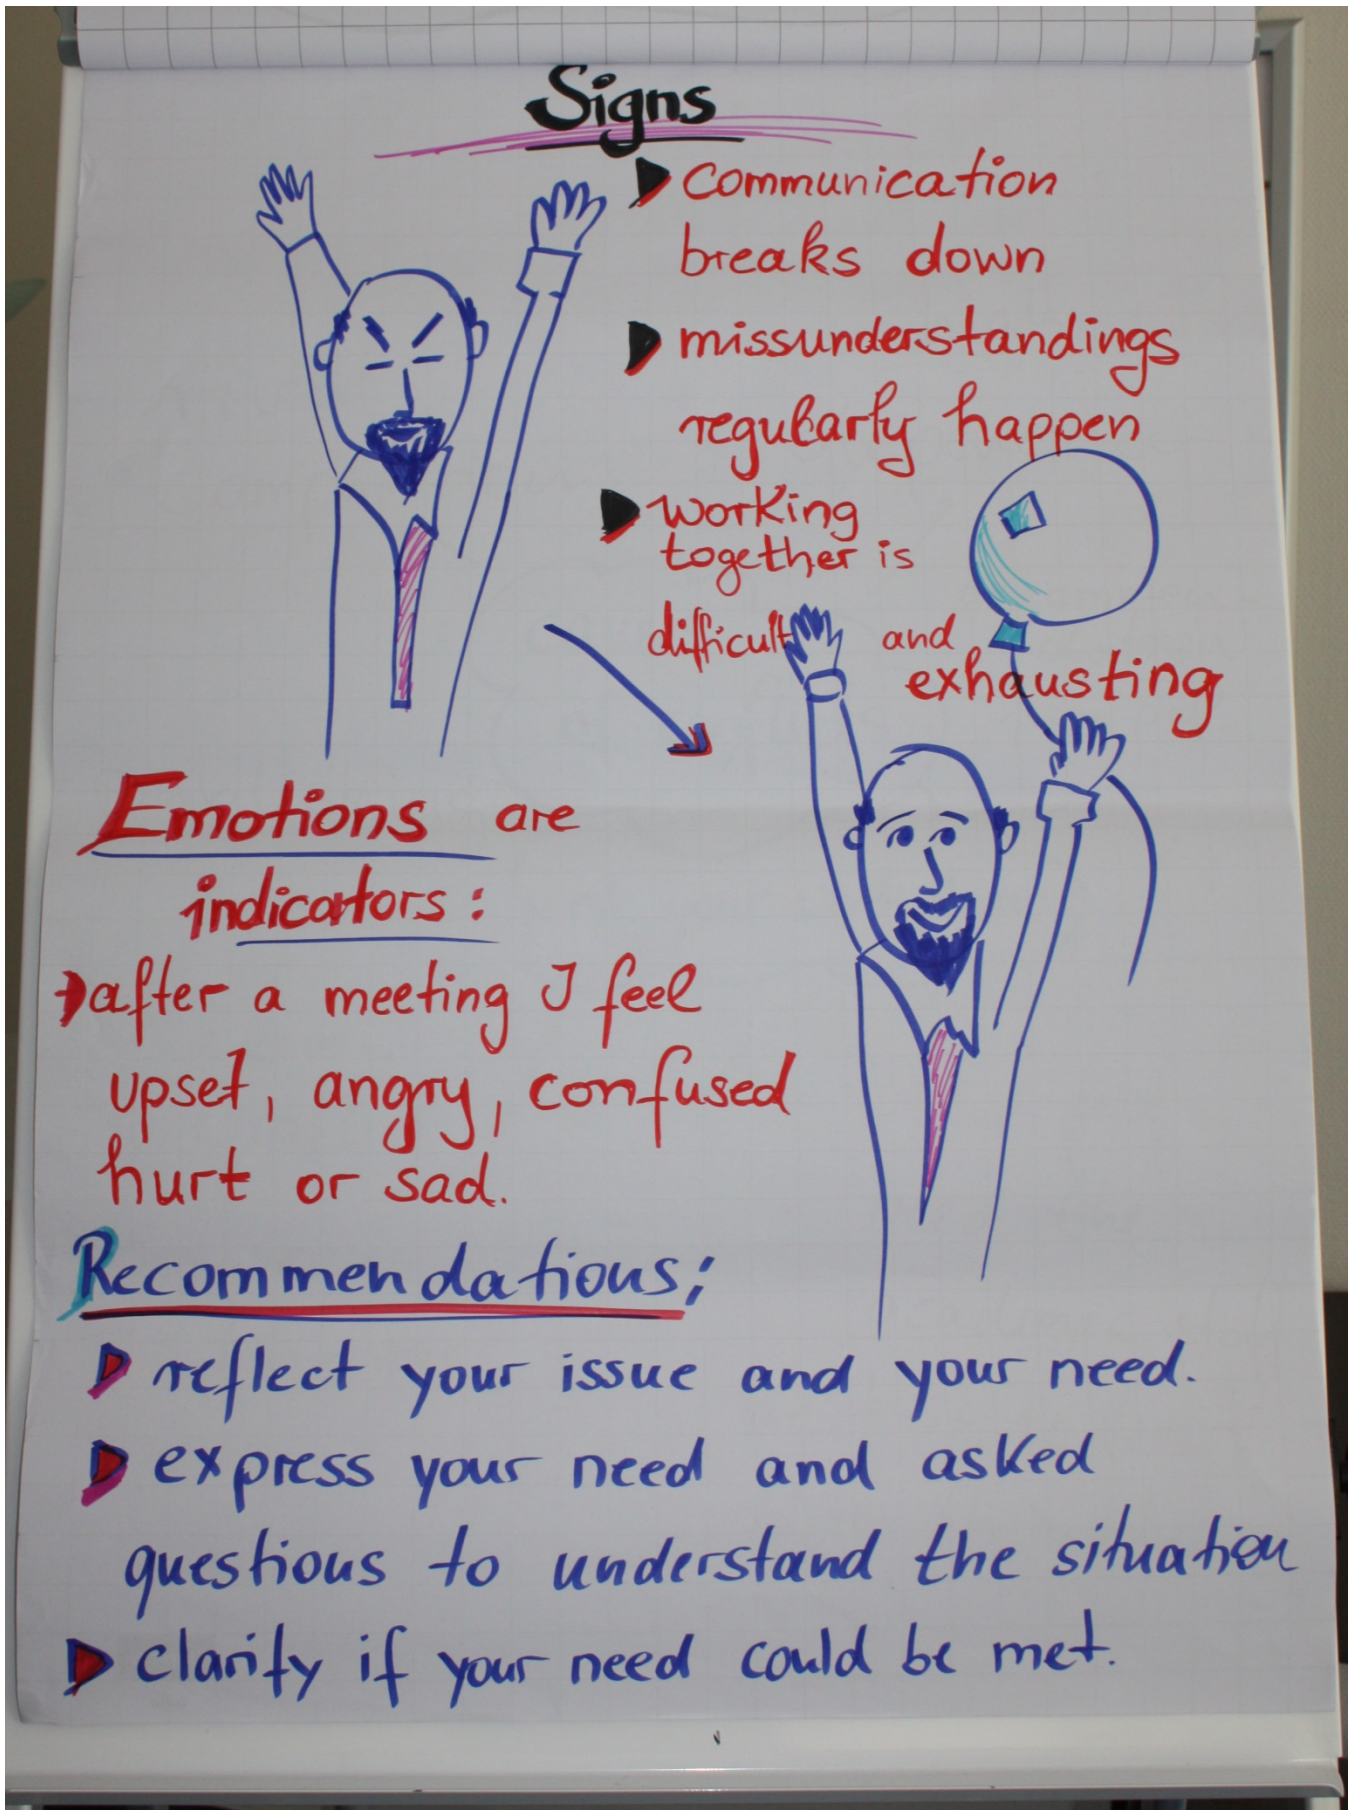 Signs
communication
breaks down
missunderstandings
regularly happen
working
together is
difficult and
exhausting
Emotions are
indicators:
after a meeting I feel
upset, angry, confused
hurt or sad.
Recommendations:
reflect your issue and your need.
express your need and asked
questions to understand the situation
clarify if your need could be met.